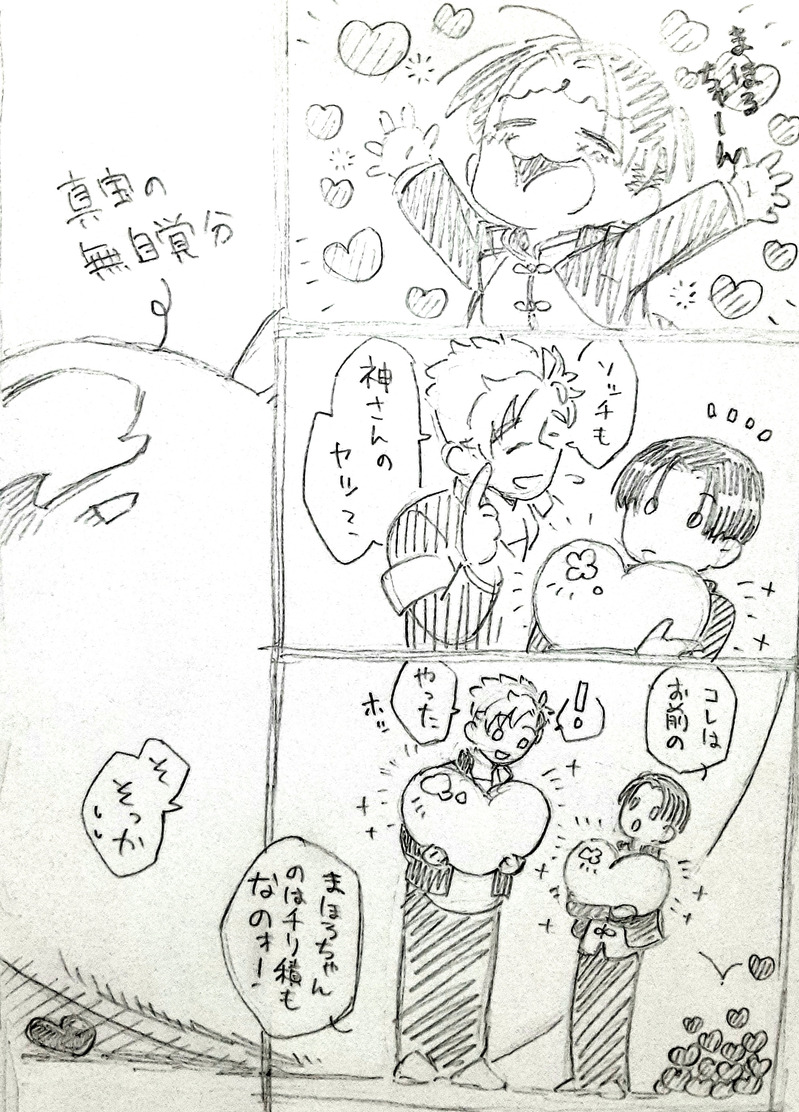 まほろ
ちゃーん
ソッチも
神さんの
ヤツで、
コレは
お前の
！
やった
ホッ
まほろちゃん
のはチリ積も
なのォー！
真宝の
無自覚分
そ
そっか